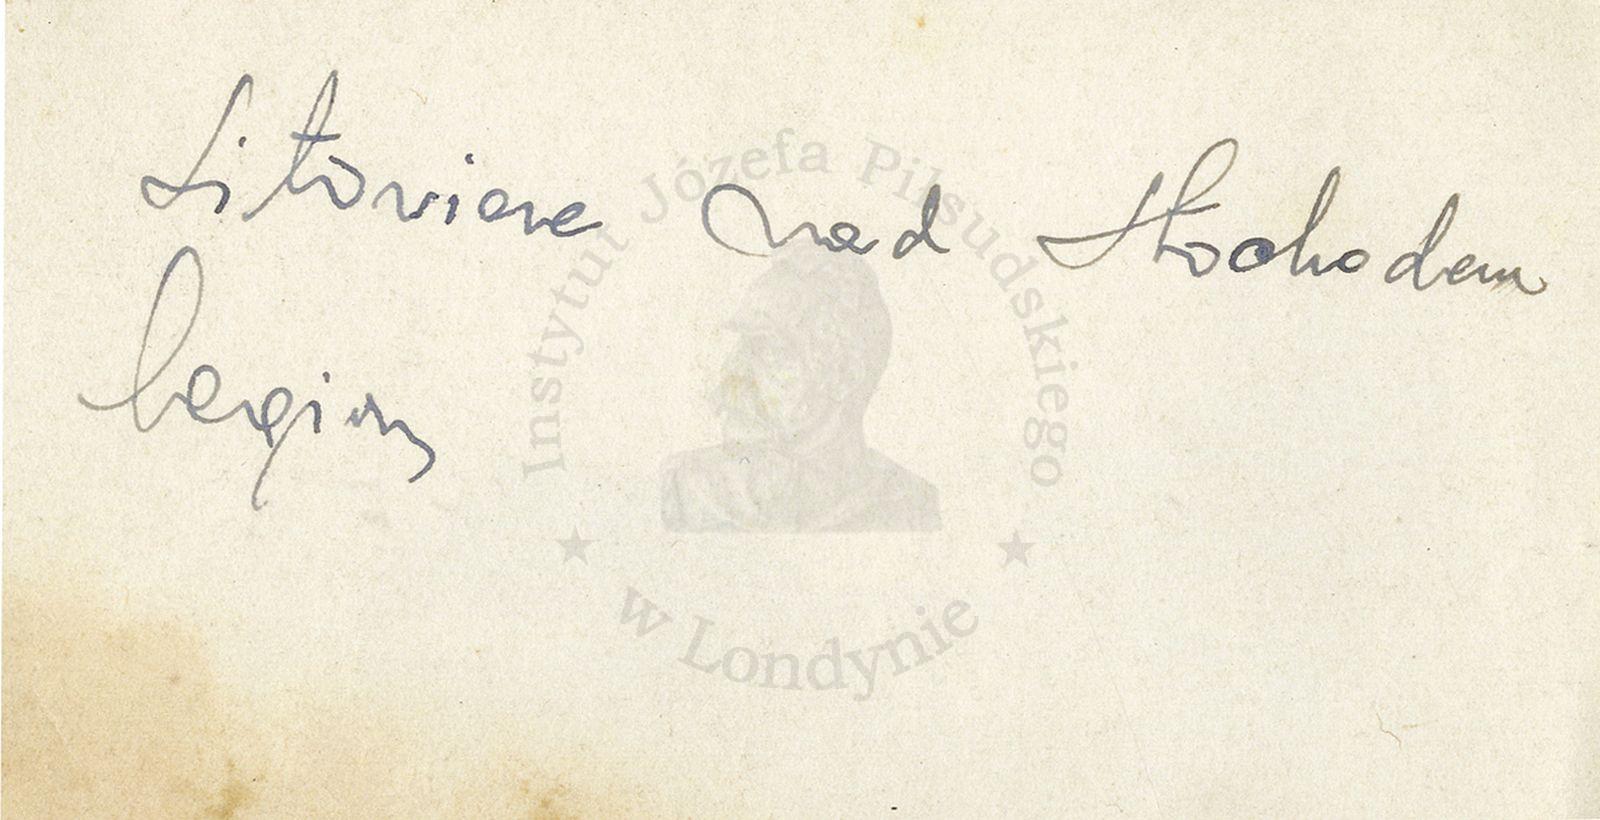 Litoviere nad Stochodem
legiony
Instytut Józefa Piłsudskiego
w Londynie